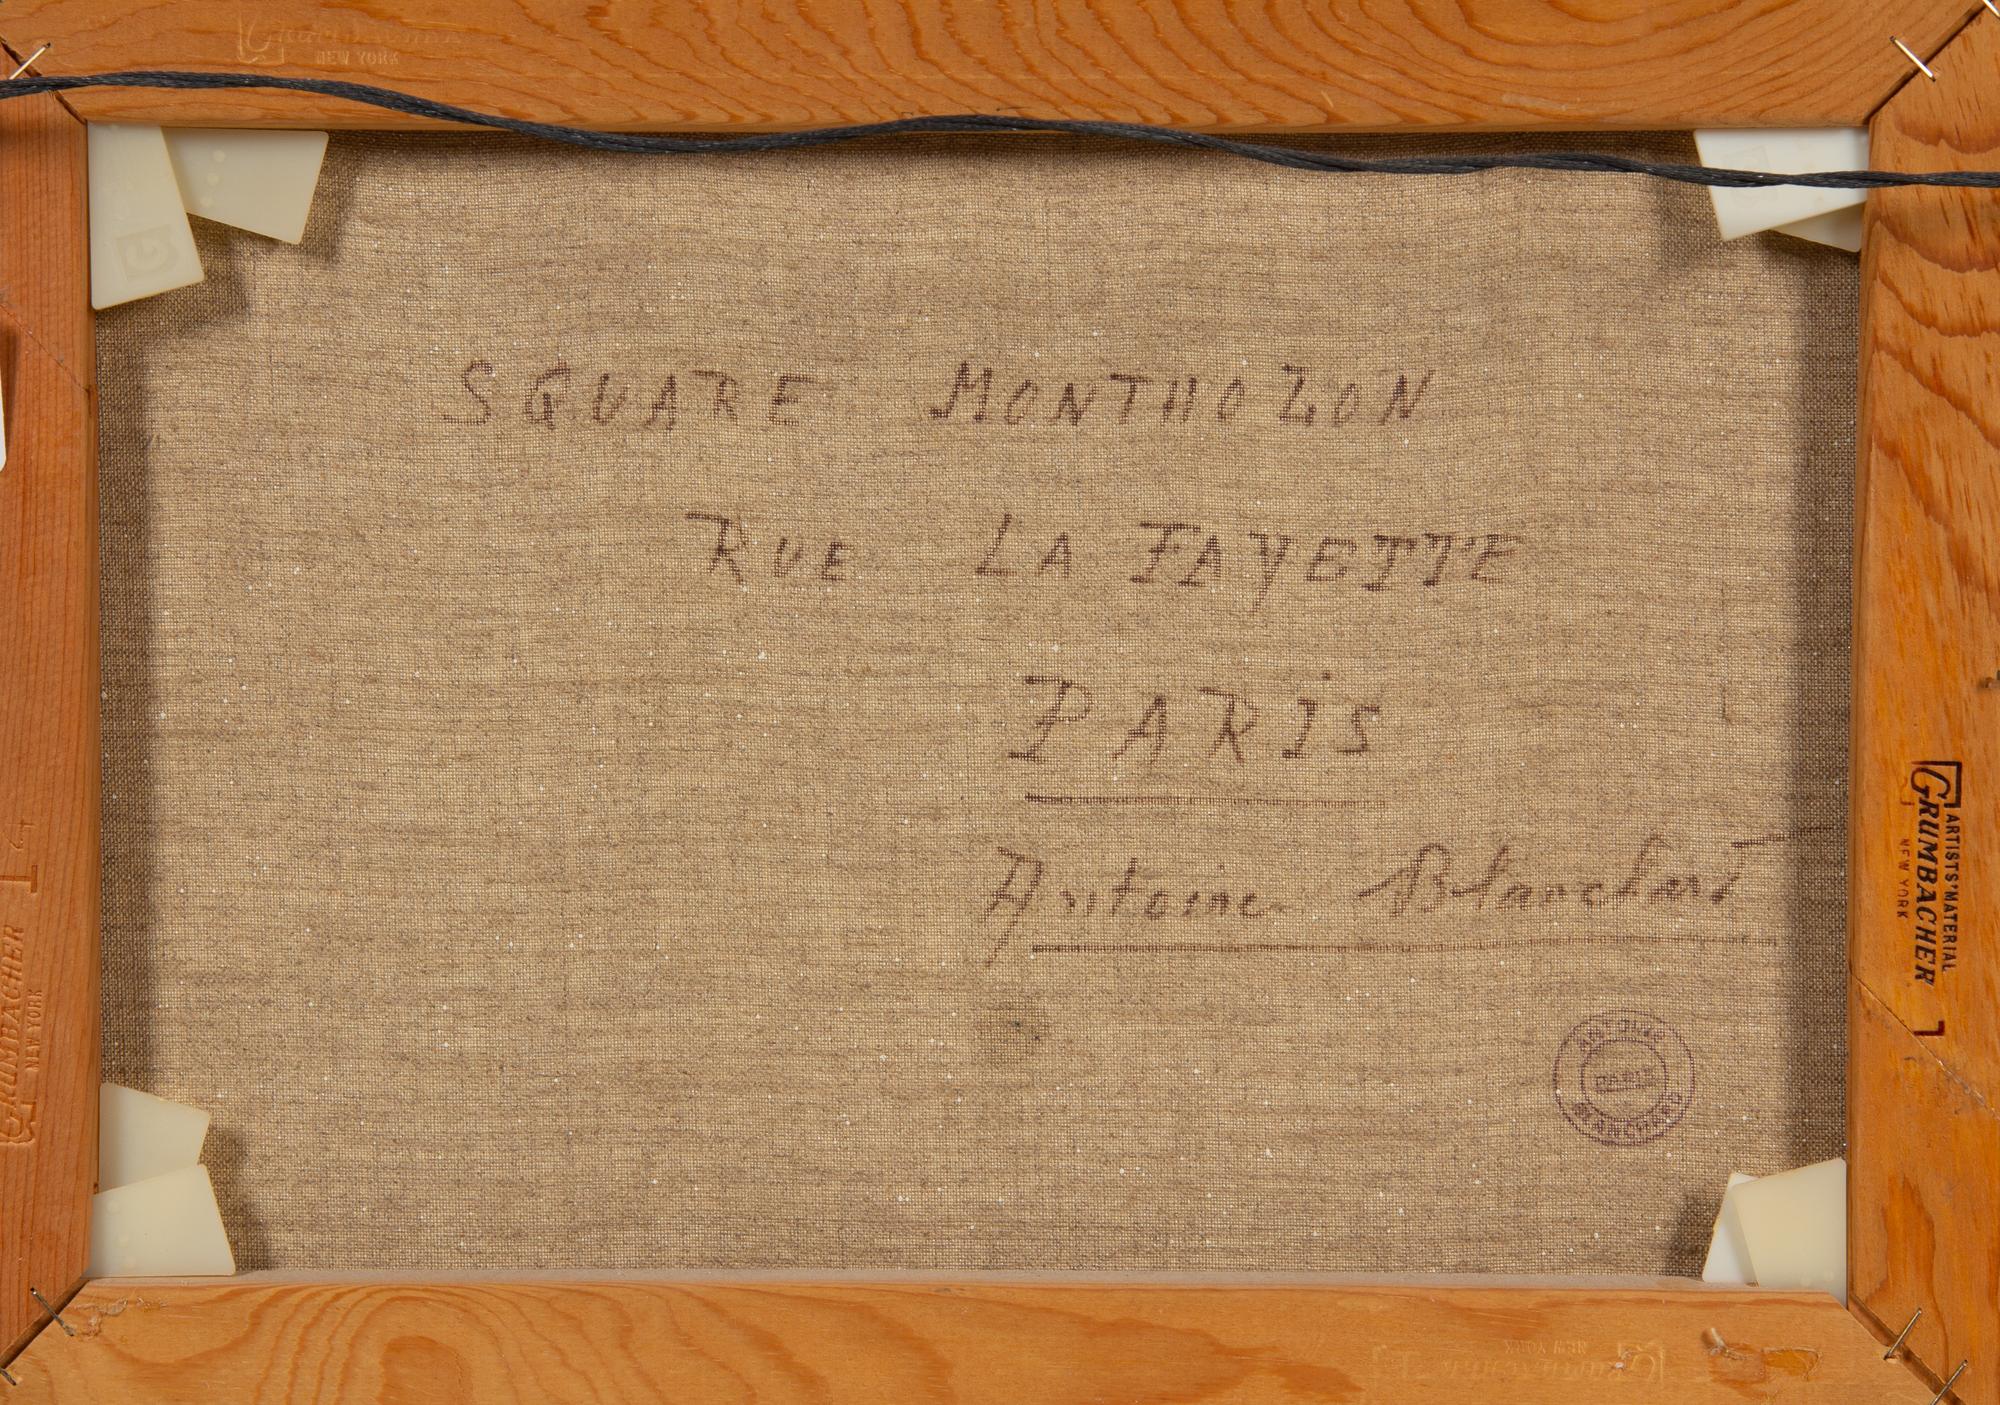 GRUMBACHER
NEW YORK
G
SQUARE MONTHOLON
RUE LA FAYETTE
PARiS
Antoine Blanchard
ANTOINE BLANCHARD
PARIS
ARTISTS' MATERIAL
GRUMBACHER
NEW YORK
GRUMBACHER
NEW YORK
14
GRUMBACHER
NEW YORK